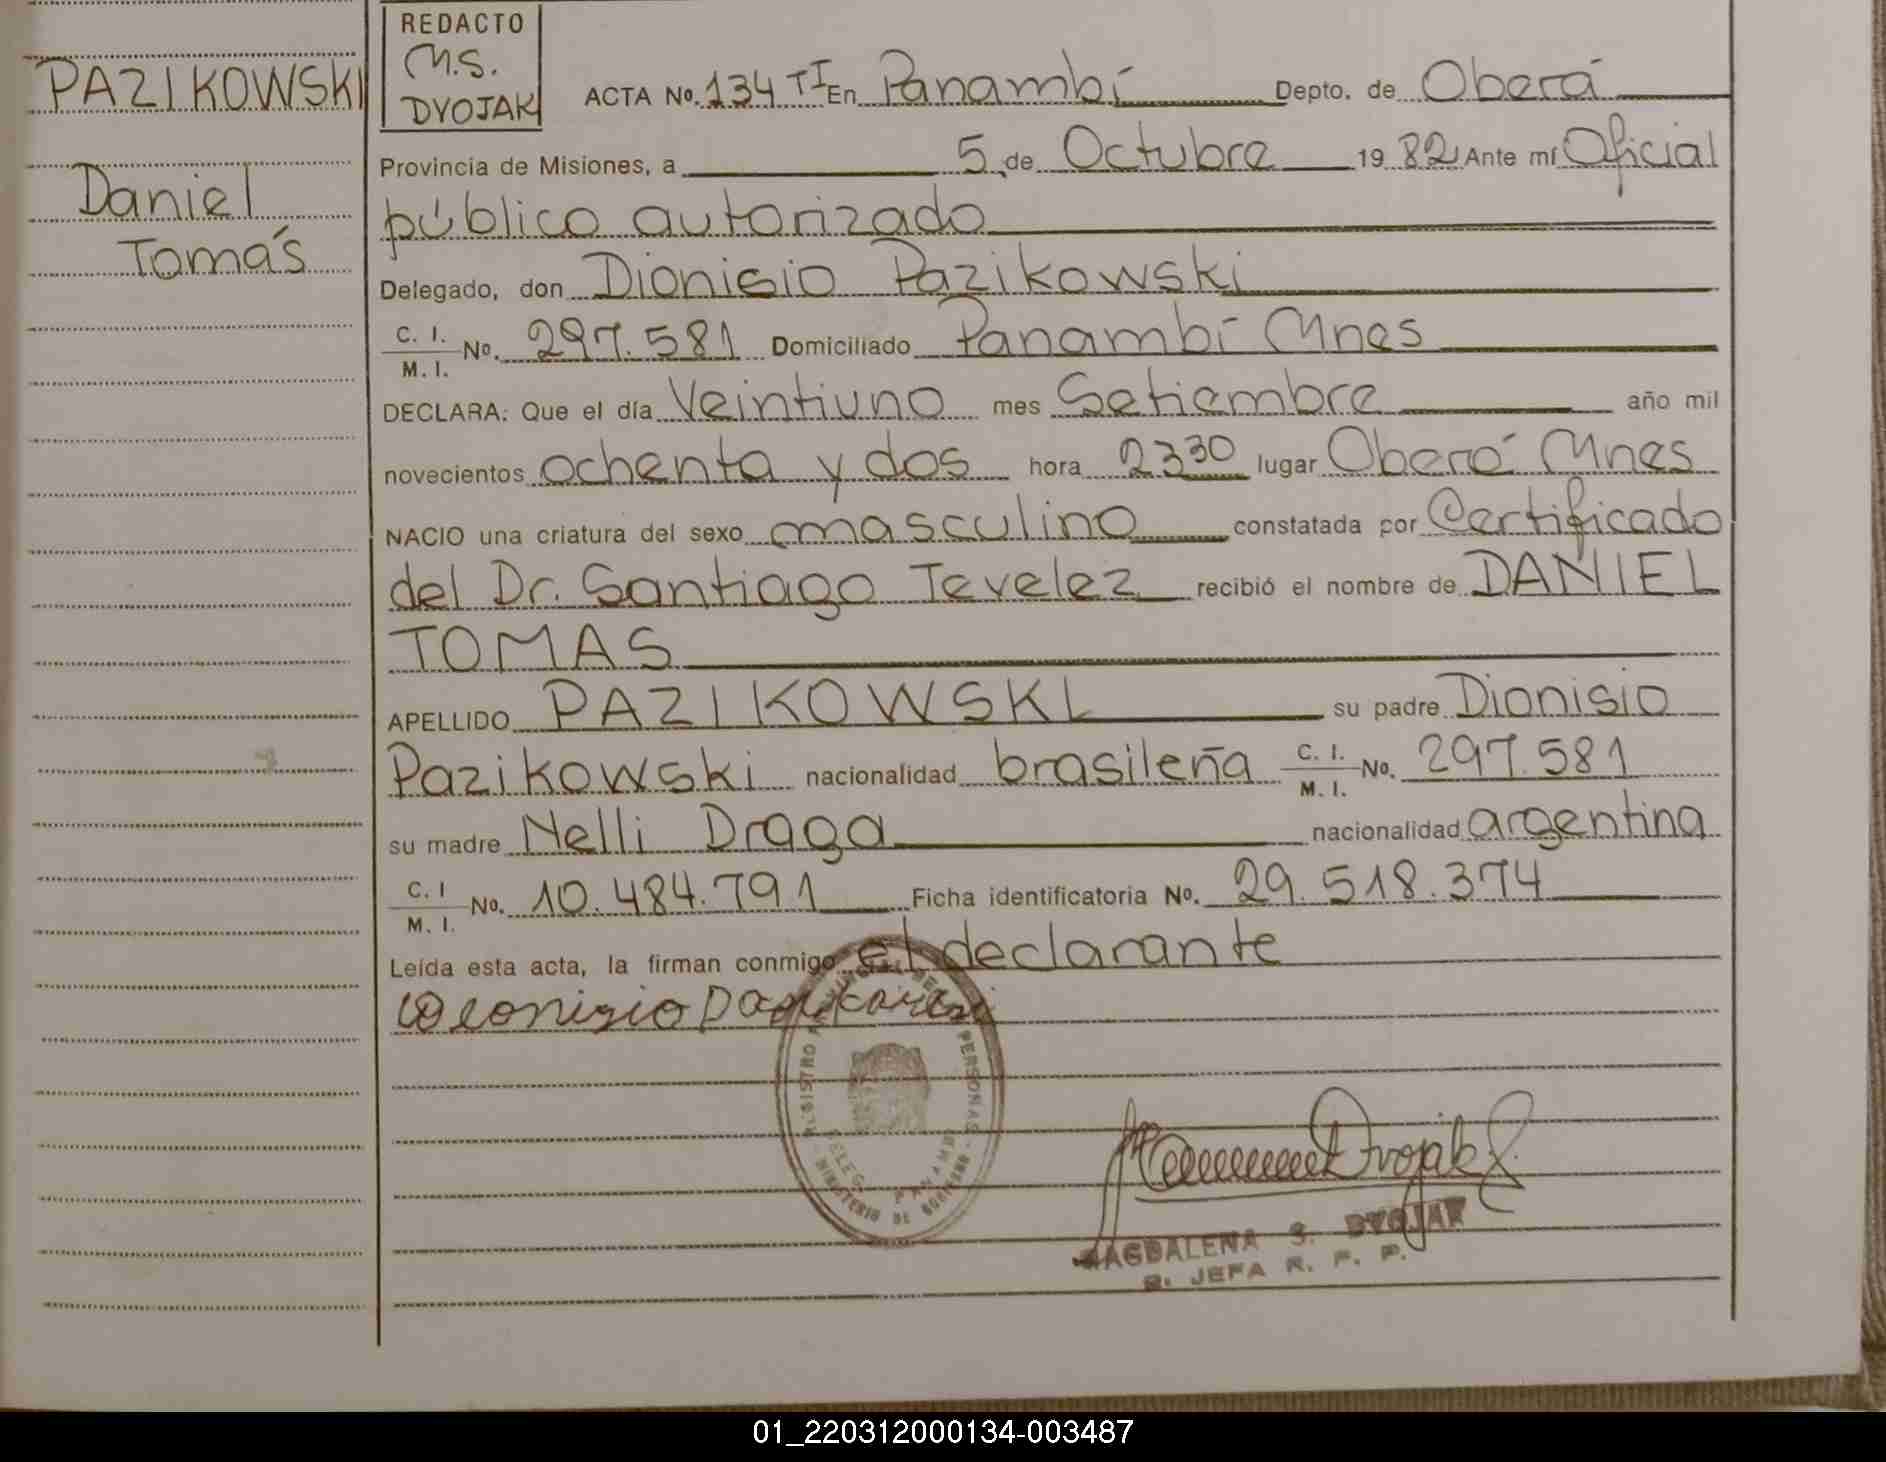 PAZIKOWSKI
Daniel
Tomás
REDACTO
M.S.
DVOJAK
ACTA No. 134 TI En Panambí Depto. de Oberá
Provincia de Misiones, a 5 de Octubre 19 82 Ante mí Oficial
público autorizado
Delegado, don Dionisio Pazikowski
C. I. M. I. No. 297.581 Domiciliado Panambí Mnes
DECLARA: Que el día Veintiuno mes Setiembre año mil
novecientos ochenta y dos hora 23 30 lugar Oberá Mnes
NACIO una criatura del sexo masculino constatada por Certificado
del Dr. Santiago Tevelez recibió el nombre de DANIEL
TOMAS
APELLIDO PAZIKOWSKI su padre Dionisio
Pazikowski nacionalidad brasileña C. I. M. I. No. 297.581
su madre Nelli Draga nacionalidad argentina
C. I M. I. No. 10.484.791 Ficha identificatoria No. 29.518.374
Leída esta acta, la firman conmigo el declarante
REGISTRO PERSONAS
MINISTERIO DE GOBIERNO
DELEG. PANAMBI
Dvojak
MAGDALENA S. DVOJAK
JEFA R. P. P.
01_220312000134-003487